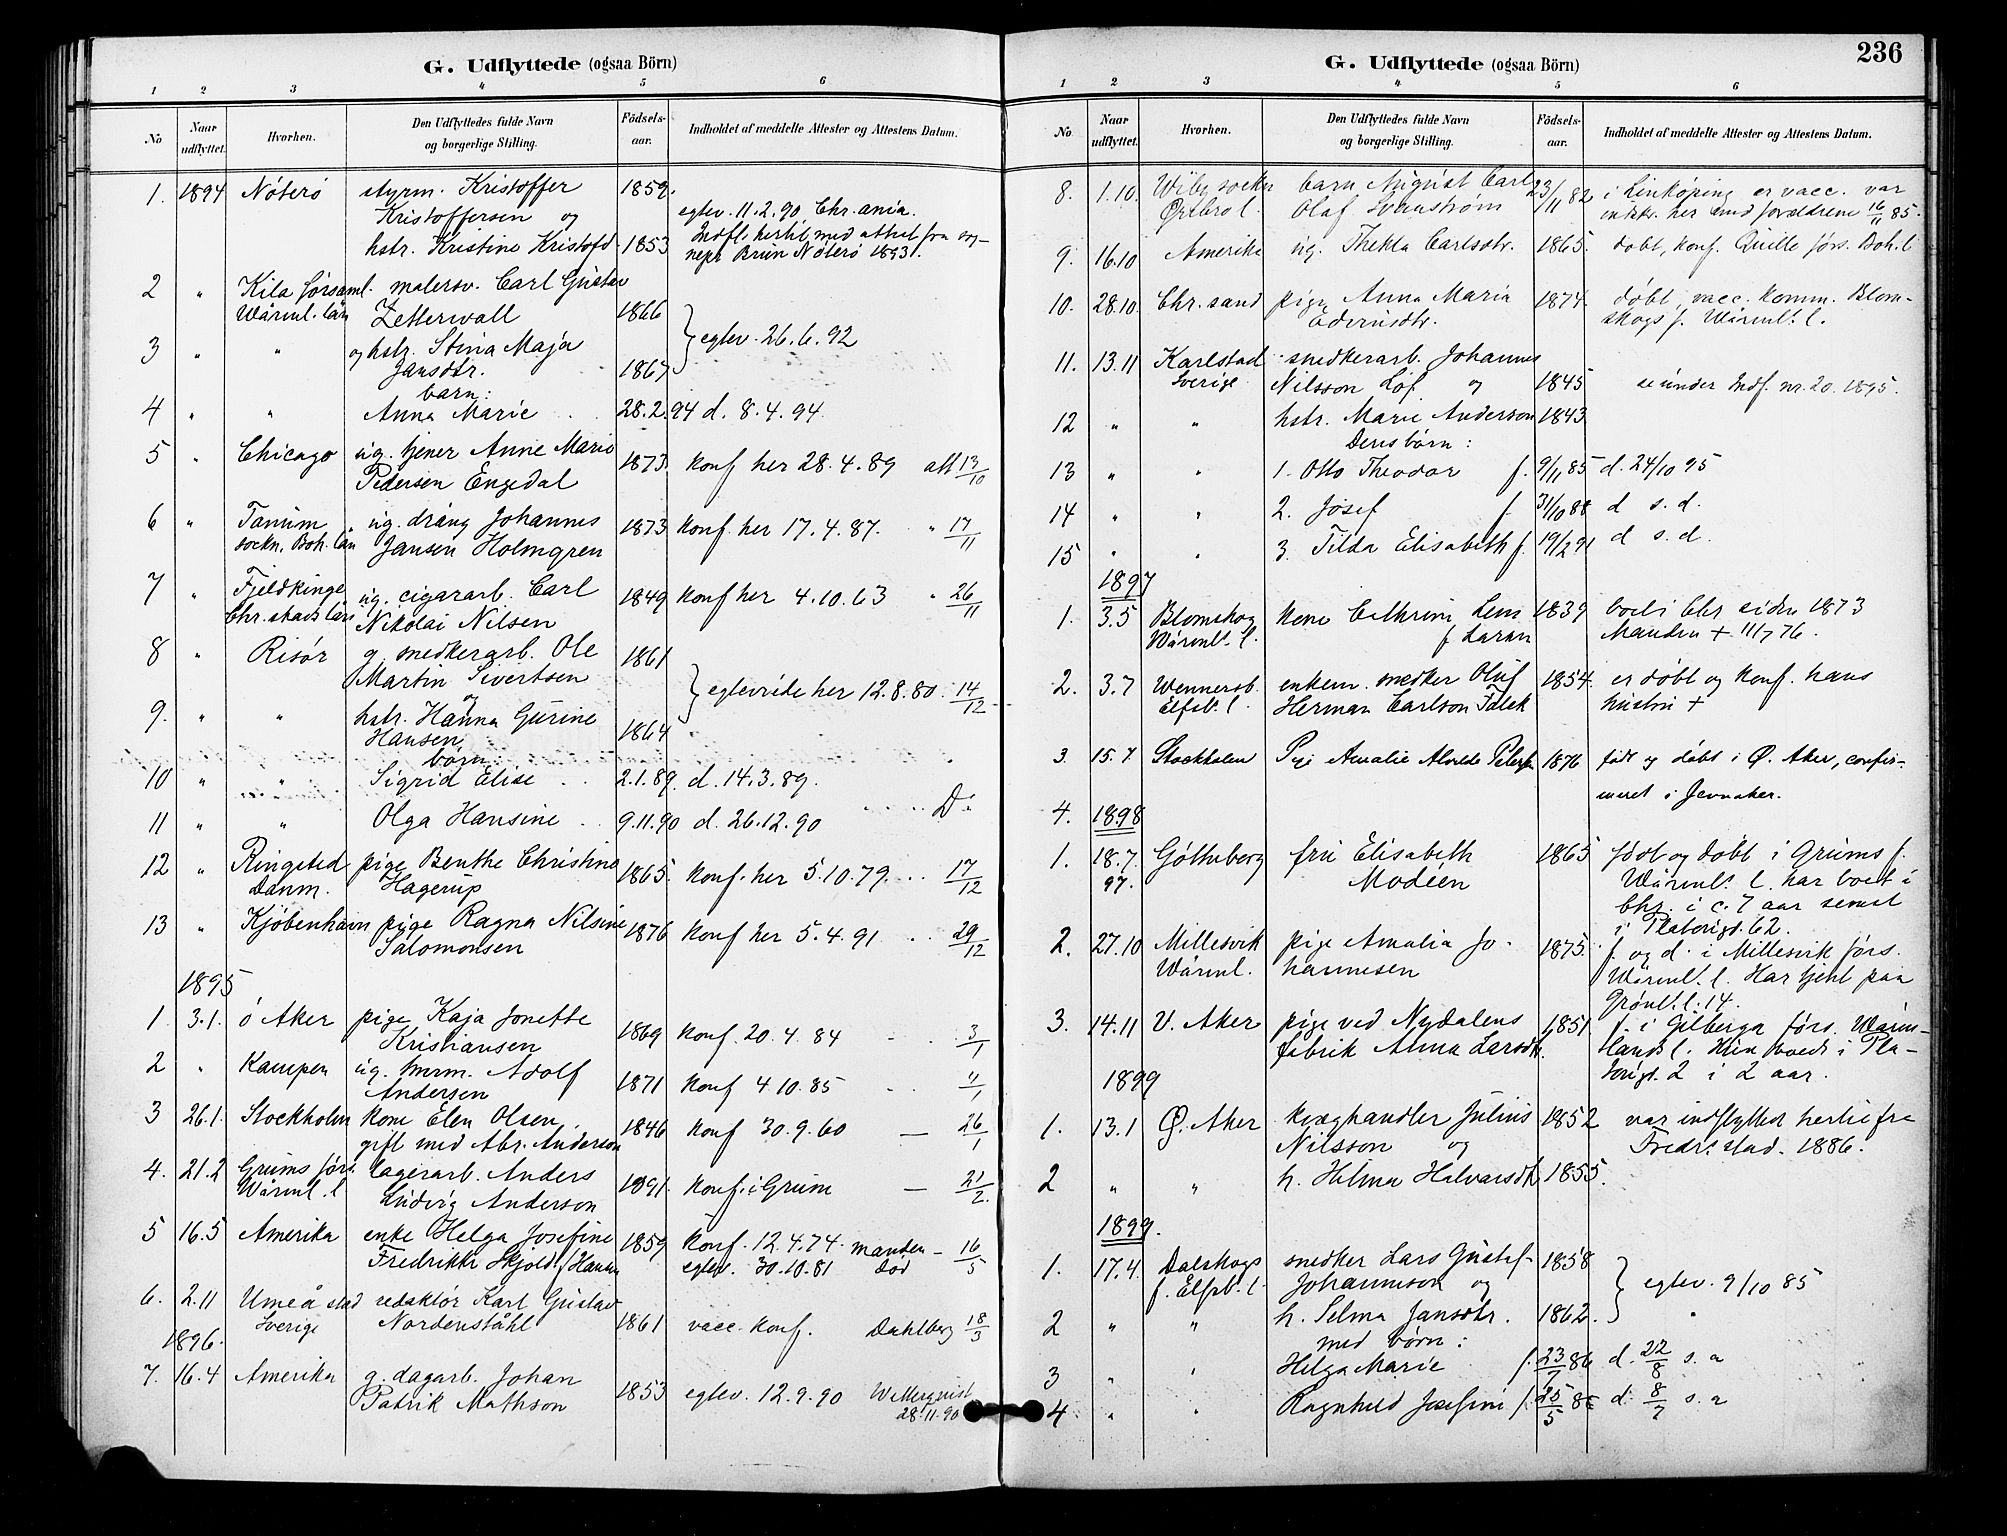 G. Udflyttede (ogsaa Börn)
1 2 3 4 5 6
No Naar udflyttet. Hvorhen. Den Udflyttedes fulde Navn og borgerlige Stilling. Födsels-aar. Indholdet af meddelte Attester og Attestens Datum.
1. 1894 Nöterö styrm. Kristoffer 1859.
Kristoffersen og egtev. 11.2.90 Chr.ania.
hstr. Kristine Kristofd. 1853 Indfl. hertil med attest fra sog-
nepr Brun Nöterö 1893.
2 " Kila församl. malersv. Carl Gustav
Wärml. län Zetterwall 1866
3 " " og hstr. Stina Maja egtev. 26.6.92
Jansdtr. 1867
barn:
4 " " Anna Marie 28.2.94 d. 8.4.94.
5 " Chicago ug. tjener Anne Marie
Pedersen Engedal 1873 konf her 28.4.89 att 13/10
6 " Tanum ug. dräng Johannes 1873 konf. her 17.4.87. " 17/11
sockn. Boh. län Jansen Holmgren
7 " Fjeldkinge ug. cigararb. Carl 1849 konf her 4.10.63 " 26/11
Chr.stads län Nikolai Nilsen
8 " Risör g. snedkerarb. Ole 1861
Martin Sivertsen
og egteviede her 12.8.80. 14/12
9. " " hstr. Hanna Gurine
Hansen 1864
børn:
10 " " Sigrid Elise 2.1.89. d. 14.3.89.
11 " " Olga Hansine 9.11.90 d. 26.12.90 D:
12 " Ringsted pige Benthe Christine 1865. konf. her 5.10.79. 17/12
Danm. Hagerup
13 " Kjöbenhavn pige Ragna Nilsine 1876 konf her 5.4.91 29/12
Salomonsen
1895
1 3.1. Ö Aker pige Kaja Jonette 1869 konf. 20.4.84 3/1
Kristiansen
2 " Kampen ug. Adolf 1871 konf 4.10.85
Andersen
3 26.1. Stockholm kone Elen Olsen 1846 konf 30.9.60 — 26/1
gift med Abr. Anderson
4. 21.2 Grums förs. lagerarb. Anders 1891. konf. i Grum — 21/2.
Wärml. l Ludvig Anderson
5 16.5 Amerika enke Helga Josefine 1859 konf. 12.4.74. manden — 16/5
Fredrikke Skjold f Hansen egtev. 30.10.81 död
6. 2.11 Umeå stad redaktör Karl Gustav
Sverige Nordenståhl 1861 vacc. konf. Dahlberg 18/3
1896.
7. 16.4 Amerika g. dagarb. Johan
Patrik Mathson 1853 egtev. 12.9.90
28.11.90
G. Udflyttede (ogsaa Börn) 236
1 2 3 4 5 6
No. Naar udflyttet. Hvorhen. Den Udflyttedes fulde Navn og borgerlige Stilling. Födsels-aar. Indholdet af meddelte Attester og Attestens Datum.
8. 1.10. Wiby sockn barn August Carl 23/11 82 i Linköping er vacc. var
Örebro l. Olaf Svenström her med forældrene 16/11 85.
9. 16.10 Amerika ug. Thekla Carlsdtr. 1865. döbt, konf. Quille förs. Boh. l
10. 28.10. Chr.sand pige Anna Maria 1874. döbt, vacc. komm. Blom-
skogs f. Wärml. l.
11. 13.11 Karlstad snedkerarb. Johannes
Sverige Nilsson Löf og 1845 se under Indf. nr. 20. 1895.
12 " " hstr. Marie Anderson 1843
Deres börn:
13 " " 1. Otto Theodor f. 9/11 85 d. 24/10 95
14 " " 2. Josef f 31/10 88 d s. d.
15 " " 3. Tilda Elisabeth f. 19/2 91 d s. d.
1897
1. 3.5 Blomskog kone Cathrine Lem 1839 boet i Chr siden 1873
Wärml. l. f Larsen Manden + 11/7 76.
2. 3.7 Wennersb. enkem. snedker Oluf 1854. er döbt og konf. hans
Elfsb. l. Herman Carlson Falek hustru +
3. 15.7 Stockholm Pige Amalie Petersen 1876 født og döbt i Ø. Aker, confir-
meret i Jevnaker.
4. 1898
1. 18.7. Götheberg fru Elisabeth 1865 födt og döbt i Grums f.
97. Modéen Wärml. l. har boet i
Chr. i c. 7 aar senest
i 62.
2. 27.10 Millesvik pige Amalia Jo- 1875. f. og d. i Millesvik förs.
Wärml. hannesen Wärml. l. Har tjent paa
Grönl. l. 14.
3. 14.11 V. Aker pige ved Nydalens 1851. f. i Gilberga förs. Wärm-
fabrik Anna Larsdtr. lands l. Hun boede i Pla-
2 i 2 aar.
1899
1. 13.1 Ø. Aker kvæghandler Julius 1852 var indflyttet hertil fra
Nilsson og Fredr.stad. 1886.
2 " " h. Hilma Halvarsdtr. 1855.
1899.
1. 17.4. Dalskogs snedker Lars Gustaf 1858
f. Elfsb. l. Johannesson og egtev. 9/10 85
2 " " h. Selma Jansdtr. 1862. "
med børn:
3 " " Helga Marie f. 23/7 86 d. 22/8 s. a
4 " " Ragnhild Josefine f. 25/5 8 d. 8/7 s. a